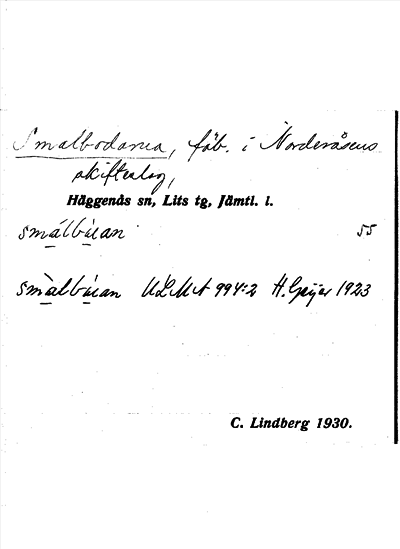 Smalbodarna, fäb. i Norderåsens
skifteslag,
Häggenås sn, Lits tg, Jämtl. l.
smálbu̱an 55
smàlbu̱an ULMA 994:2 H. Geijer 1923
C. Lindberg 1930.